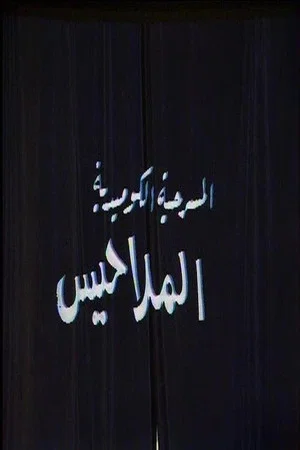 المسرحية الكوميدية
الملاحيس